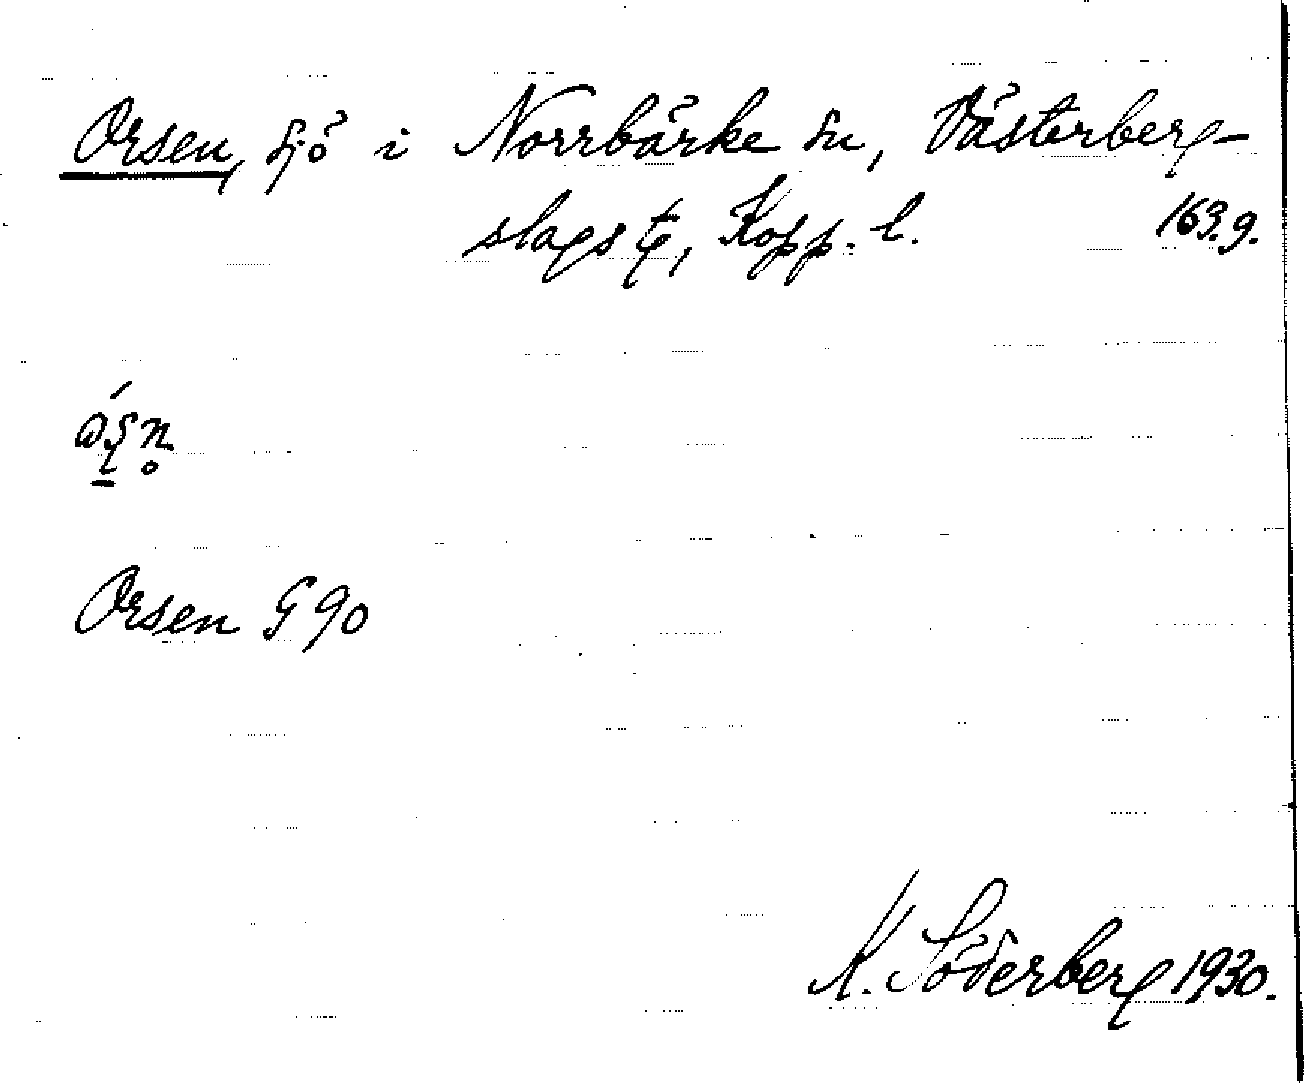 Orsen, sjö i Norrbärke sn, Västerberg-
slags tg, Kopp. l. 163.g.
Orsen G 90
K. Söderberg 1930.